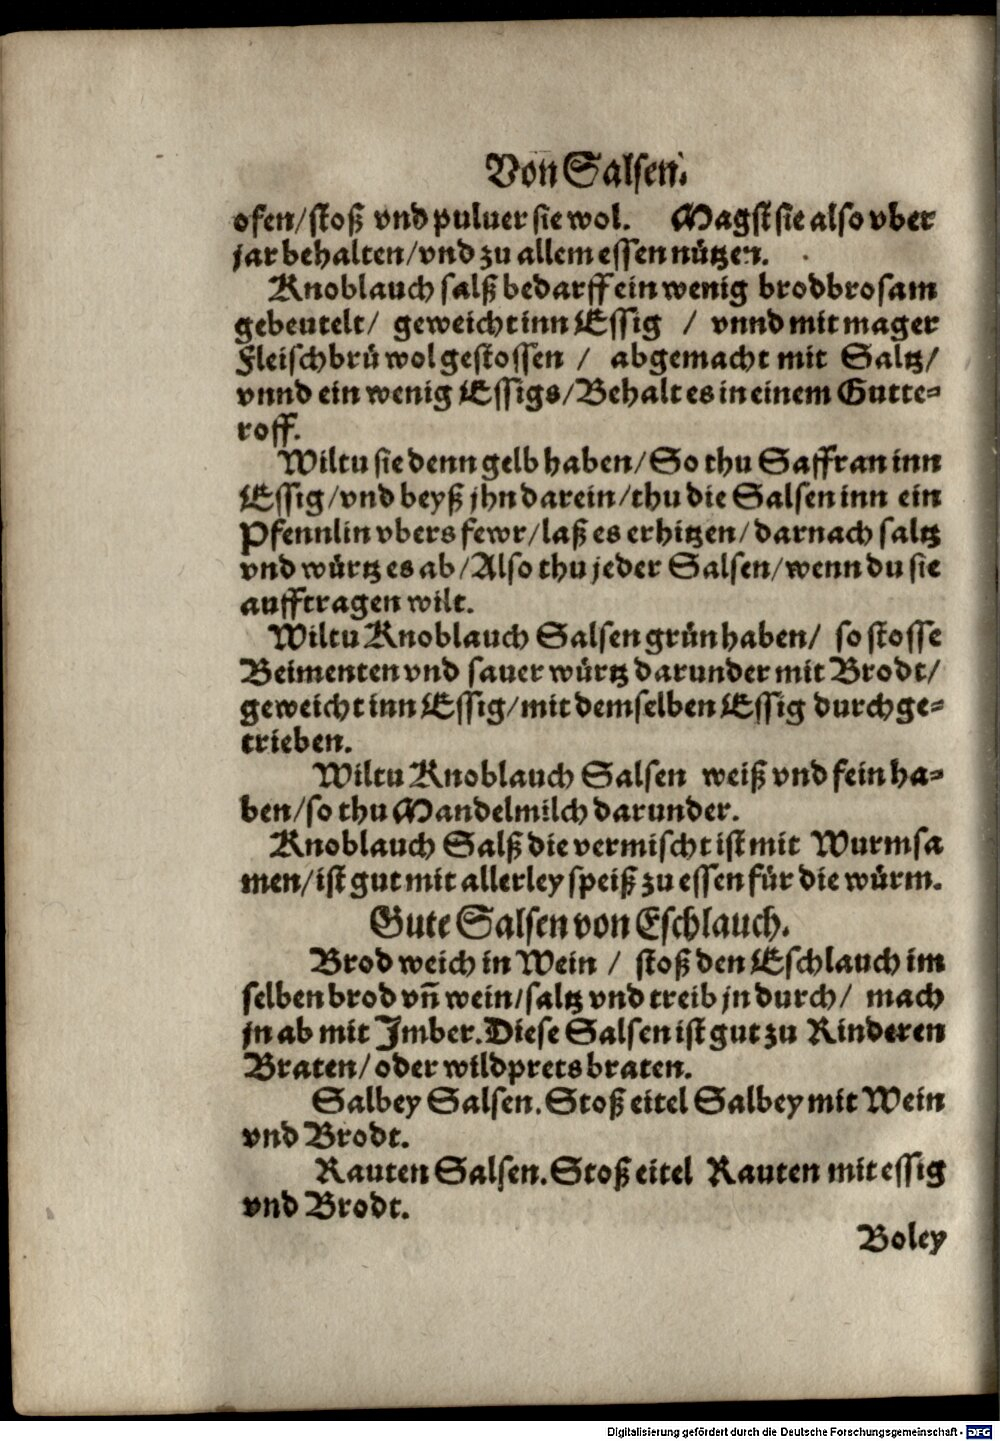 Von Salsen.
ofen/stoß vnd puluer sie wol. Magst sie also vber
jar behalten/vnd zu allem essen nützen.
Knoblauch salß bedarff ein wenig brodbrosam
gebeutelt/ geweicht inn Essig / vnnd mit mager
Fleischbrü wol gestossen / abgemacht mit Saltz/
vnnd ein wenig Essigs/Behalt es in einem Gutte-
roff.
Wiltu sie denn gelb haben/So thu Saffran inn
Essig/vnd beyß jhn darein/thu die Salsen inn ein
Pfennlin vbers fewr/laß es erhitzen/darnach saltz
vnd würtz es ab/Also thu jeder Salsen/wenn du sie
aufftragen wilt.
Wiltu Knoblauch Salsen grün haben/ so stosse
Beimenten vnd sauer würtz darunder mit Brodt/
geweicht inn Essig/mit demselben Essig durchge-
trieben.
Wiltu Knoblauch Salsen weiß vnd fein ha-
ben/so thu Mandelmilch darunder.
Knoblauch Salß die vermischt ist mit Wurmsa
men/ist gut mit allerley speiß zu essen für die würm.
Gute Salsen von Eschlauch.
Brod weich in Wein / stoß den Eschlauch im
selben brod vñ wein/saltz vnd treib jn durch/ mach
jn ab mit Imber.Diese Salsen ist gut zu Rinderen
Braten/oder wildpretsbraten.
Salbey Salsen.Stoß eitel Salbey mit Wein
vnd Brodt.
Rauten Salsen.Stoß eitel Rauten mit essig
vnd Brodt.
Boley
Digitalisierung gefördert durch die Deutsche Forschungsgemeinschaft - DFG